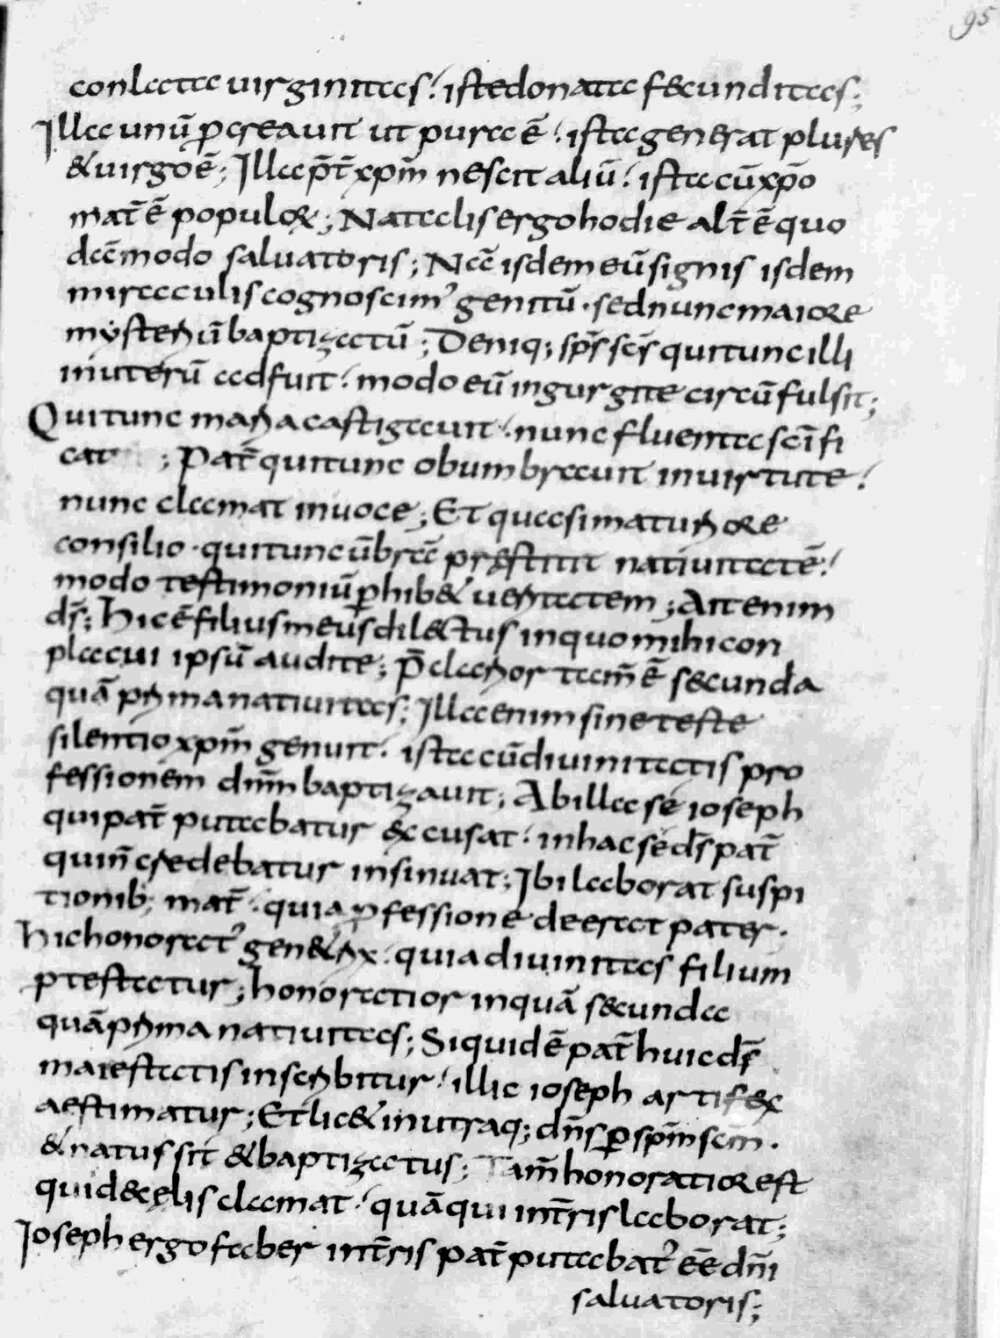 95
conlata uirginitas; iste donata fecunditas;
Illa unū ꝓcreauit ut pura ē; ista generat plures
& uirgo ē; Illa p̄t̄ xp̄m nescit aliū; ista cū xp̄o
mat̄ ē populoꝝ; Natalis ergo hodie alt̄ ē quo
dā modo saluatoris; Nā isdem eū signis isdem
miraculis cognoscim' genitū · sed nunc maiore
mysteriū baptizatū; Deniq; sp̄s sc̄s qui tunc illi
in uterū adfuit; modo eū ingurgite circūfulsit;
Qui tunc maria castigauit; nunc fluenta sc̄ifi
cat ; Pat̄ qui tunc obumbrauit in uirtute;
nunc clamat in uoce; Et quasi maturiore
consilio · qui tunc ūbrā prestitit natiuitatē;
modo testimoniū ꝑhib& ueritatem; Ait enim
ds̄; Hic ē filius meus dil&tus in quo mihi con
placui ipsū audite; P̄clarior tam̄ ē secunda
quā prima natiuitas; Illa enim sine teste
silentio xp̄m genuit; ista cū diuinitatis pro
fessionem dn̄m baptizauit; Ab illa se ioseph
qui pat̄ putabatur &cusat; in hac se ds̄ pat̄
qui n̄ credebatur insinuat; Ibi laborat suspi
tionib; mat̄; quia ꝓfessione deerat pater;
Hic honorat' gen&rix; quia diuinitas filium
ꝓtestatur; honoratior inquā secunda
quā prima natiuitas; Siquidē pat̄ huic ds̄
maiestatis inscribitur; illic ioseph artifex
aestimatur; Et lic& in utraq; dn̄s ꝑ sp̄m sc̄m ·
& natus sit & baptizatus; Tam̄ honoratior est
qui d& cęlis clamat; quā qui in t̄ris laborat;
Ioseph ergo faber in t̄ris pat̄ putabat' ēē dn̄i
saluatoris;